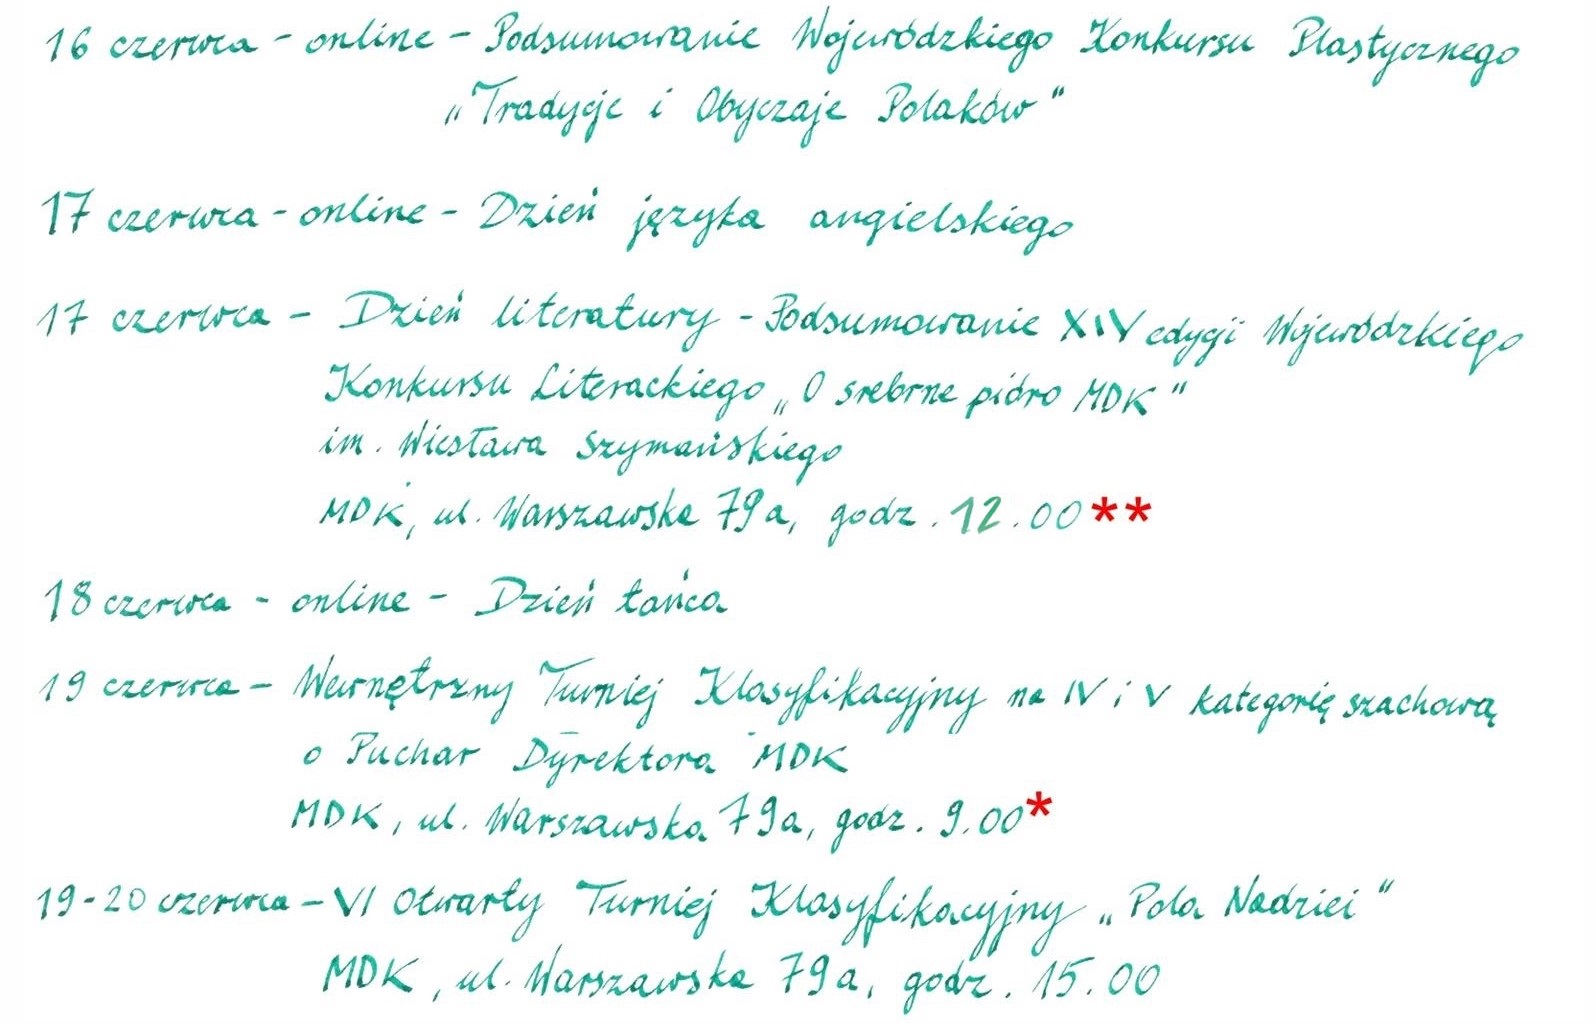 16 czerwca - online - Podsumowanie Wojewódzkiego Konkursu Plastycznego
„Tradycje i Obyczaje Polaków”
17 czerwca - online - Dzień języka angielskiego
17 czerwca - Dzień literatury - Podsumowanie XIV edycji Wojewódzkiego
Konkursu Literackiego „O srebrne pióro MDK”
im. Wiesława Szymańskiego
MDK, ul. Warszawska 79a, godz. 12.00**
18 czerwca - online - Dzień tańca
19 czerwca - Wewnętrzny Turniej Klasyfikacyjny na IV i V kategorię szachową
o Puchar Dyrektora MDK
MDK, ul. Warszawska 79a, godz. 9.00*
19-20 czerwca - VI Otwarty Turniej Klasyfikacyjny „Pola Nadziei”
MDK, ul. Warszawska 79a, godz. 15.00